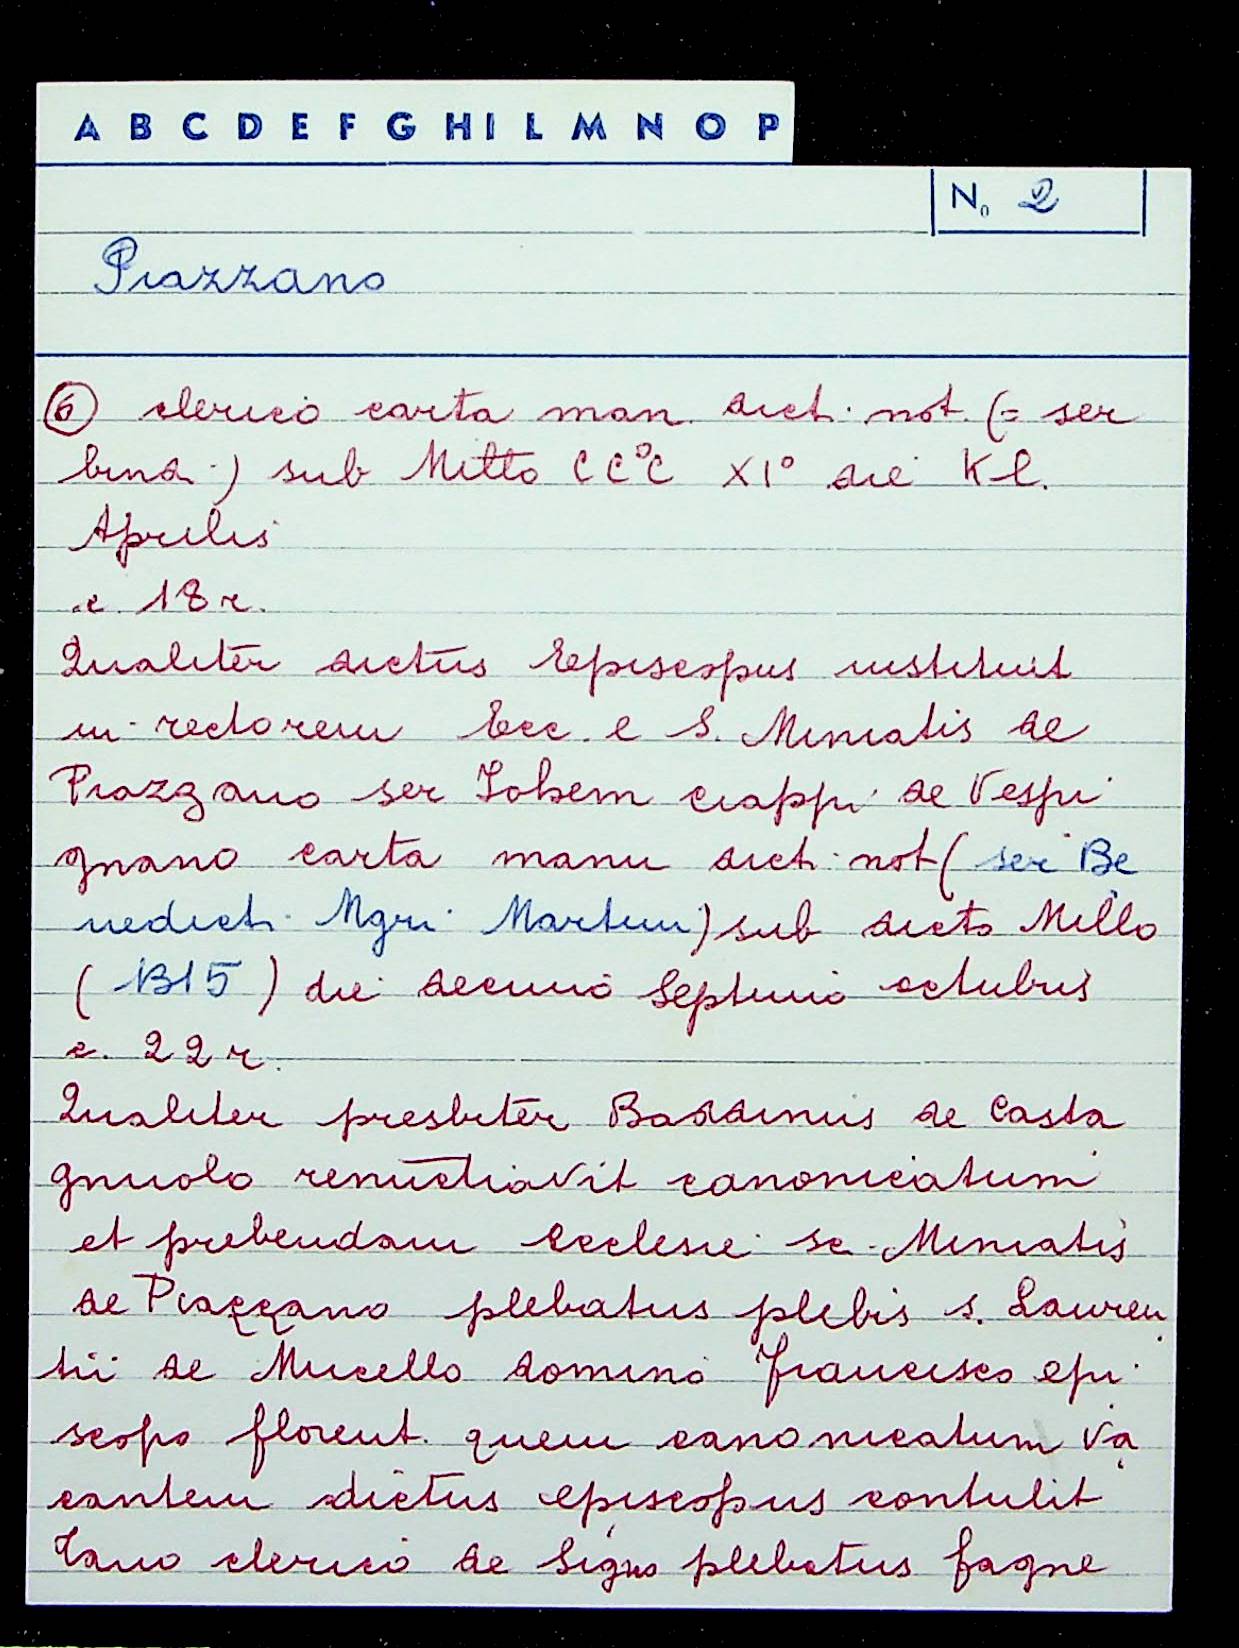 A B C D E F G H I L M N O P
N. 2
Piazzano
6 clerico carta man. dict. not. (= ser
bind.) sub Millo CC°C XI° die Kl.
Aprilis
c. 18 r.
Qualiter dictus Episcopus instituit
in rectorem Ecc.e S. Miniatis de
Piazzano ser Johem ciappi de Vespi
gnano carta manu dict. not ( ser Be
nedict. Mgri Martini) sub dicto Millo
( 1315 ) die decimo Septimo octubris
c. 22 r.
Qualiter presbiter Baldinus de Casta
gnuolo renuctiavit canonicatum
et prebendam Ecclesie sc. Miniatis
de Piazzano plebatus plebis s. Lauren
tii de Mucello domino Francisco epi
scopo florent. quem canonicatum va
cantem dictus episcopus contulit
clerico de Signo plebatus fagne